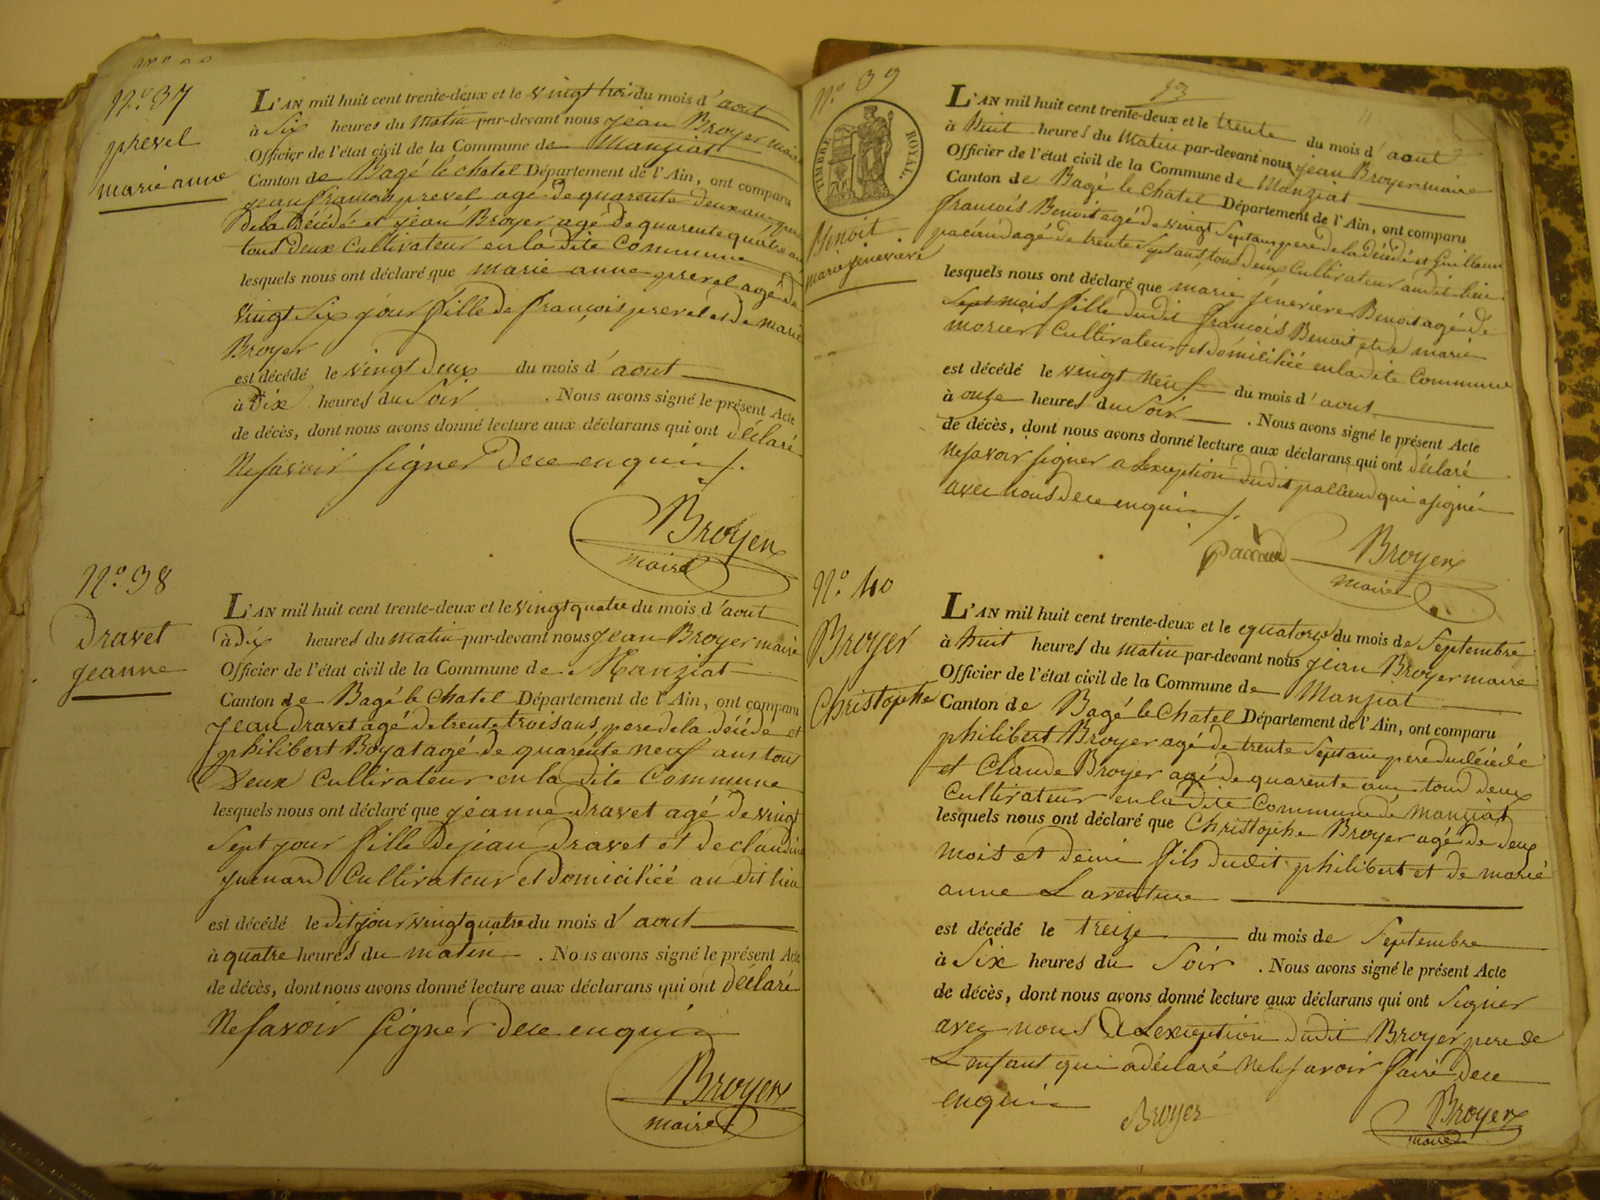 N.º 37
prevel
marie anne
L'AN mil huit cent trente-deux et le vingt trois du mois d'aout
à Six heures du Matin par-devant nous jean Broyer maire
Officier de l'état civil de la Commune de Manziat
Canton de Bagé le chatel Département de l'Ain, ont comparu
jean francois prevel agé de quarente deux ans pere
dela Décédé et jean Broyer agé de quarente quatre ans
tous deux Cultivateur en la dite Commune
lesquels nous ont déclaré que marie anne prevel agé de
Vingt Six jour fille de françois prevel et de marie
Broyer
est décédé le vingt Deux du mois d'aout
à Dix heures du Soir . Nous avons signé le présent Acte
de décès, dont nous avons donné lecture aux déclarans qui ont déclaré
Ne savoir signer dece enquis
Broyer
maire
N.º 38
Dravet
jeanne
L'AN mil huit cent trente-deux et le vingt quatre du mois d'aout
à Dix heures du matin par-devant nous jean Broyer maire
Officier de l'état civil de la Commune de Manziat
Canton de Bagé le Chatel Département de l'Ain, ont comparu
jean dravet agé de trente trois ans, pere de la décéde et
philibert Boyat agé de quarente neuf ans tous
Deux Cultivateur en la dite Commune
lesquels nous ont déclaré que jeanne dravet agé de vingt
Sept jour fille de jean Dravet et de claudine
Cultivateur et domiciliée au dit lieu
est décédé le dit jour vingt quatre du mois d'aout
à quatre heures du matin . Nous avons signé le présent Acte
de décès, dont nous avons donné lecture aux déclarans qui ont déclaré
Ne savoir signer dece enquis
Broyer
maire
N.º 39
13
TIMBRE ROYAL.
Benoit
marie jenevieve
L'AN mil huit cent trente-deux et le trente du mois d'aout
à huit heures du Matin par-devant nous jean Broyer maire
Officier de l'état civil de la Commune de Manziat
Canton de Bagé le Chatel Département de l'Ain, ont comparu
francois Benoit agé de vingt Sept ans pere de la décédé et Guillaume
pacaud agé de trente Sept ans, tous deux Cultivateur audit lieu
lesquels nous ont déclaré que marie jenevieve Benoit agé de
Sept mois fille dudit francois Benoit et de marie
morier Cultivateur et domiciliée en la dite Commune
est décédé le vingt Neuf du mois d'aout
à onze heures du Soir . Nous avons signé le présent Acte
de décès, dont nous avons donné lecture aux déclarans qui ont déclaré
Ne savoir signer a Lexeption dudit paccaud qui a signé
avec nous dece enquis
paccaud Broyer
maire
N.º 40
Broyer
Christophe
L'AN mil huit cent trente-deux et le quatorze du mois de Septembre
à huit heures du matin par-devant nous jean Broyer maire
Officier de l'état civil de la Commune de Manziat
Canton de Bagé le Chatel Département de l'Ain, ont comparu
philibert Broyer agé de trente Sept ans pere du décédé
et Claude Broyer agé de quarente ans tous deux
Cultivateur en la dite Commune de Manziat
lesquels nous ont déclaré que Christophe Broyer agé de deux
mois et demi fils dudit philibert et de marie
anne Laventure
est décédé le treize du mois de Septembre
à Six heures du Soir . Nous avons signé le présent Acte
de décès, dont nous avons donné lecture aux déclarans qui ont Signer
avec nous a Lexeption dudit Broyer pere de
L enfant qui a déclaré Ne le savoir faire dece
enquis
Broyer
Broyer
maire